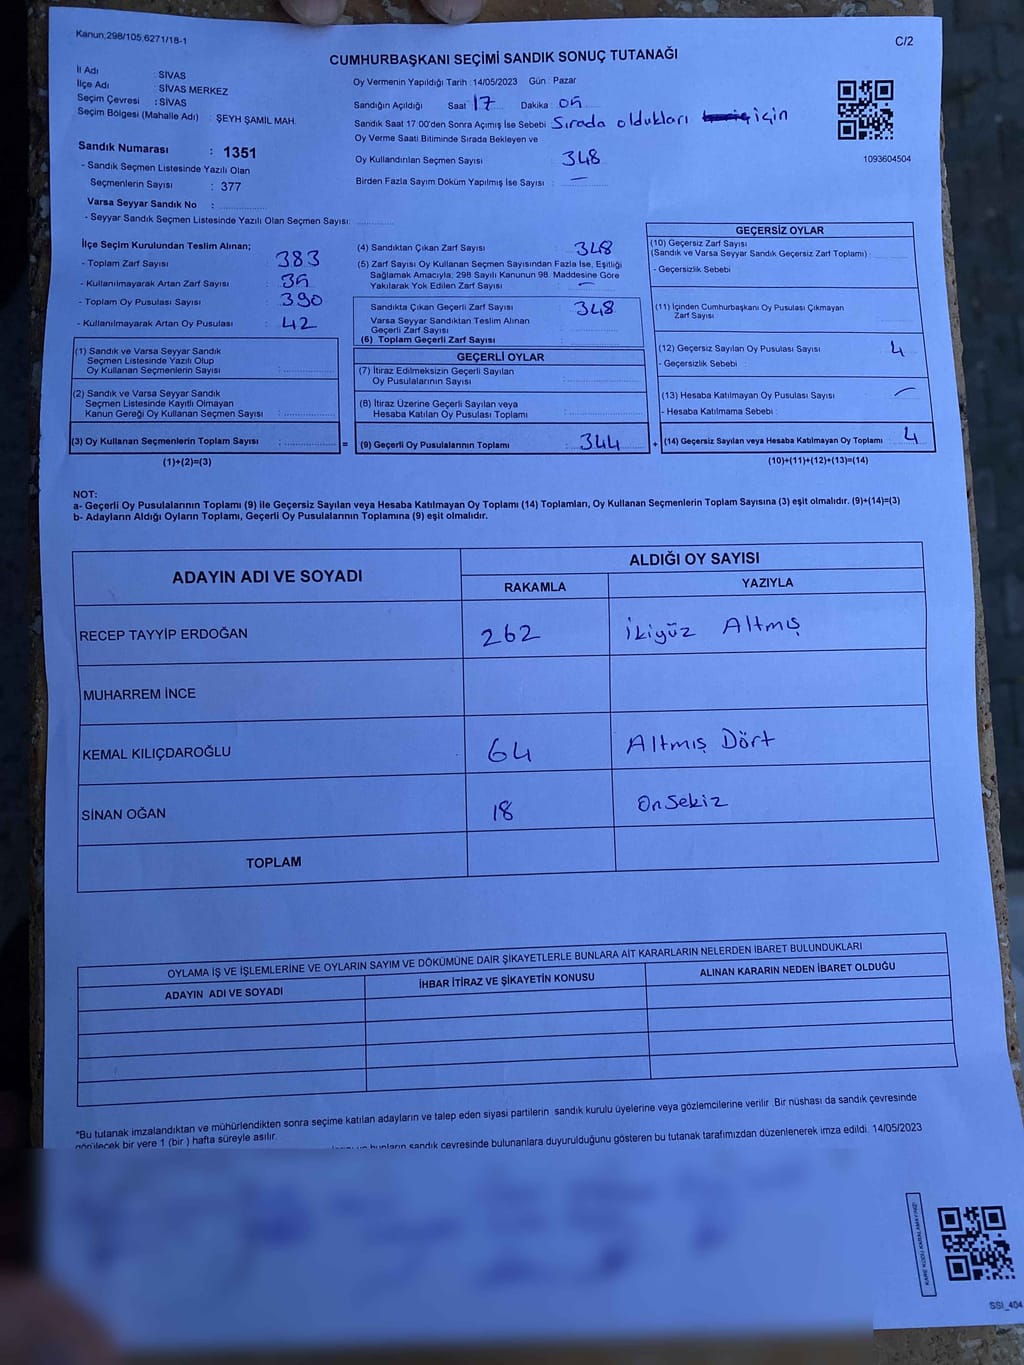 Kanun,298/105,6271/18-1
C/2
CUMHURBAŞKANI SEÇİMİ SANDIK SONUÇ TUTANAĞI
İl Adı : SİVAS
İlçe Adı : SİVAS MERKEZ
Seçim Çevresi : SİVAS
Seçim Bölgesi (Mahalle Adı) : ŞEYH ŞAMİL MAH.
Sandık Numarası : 1351
- Sandık Seçmen Listesinde Yazılı Olan
Seçmenlerin Sayısı : 377
Varsa Seyyar Sandık No :
- Seyyar Sandık Seçmen Listesinde Yazılı Olan Seçmen Sayısı:
Oy Vermenin Yapıldığı Tarih :14/05/2023 Gün : Pazar
Sandığın Açıldığı Saat 17 Dakika : 05
Sandık Saat 17:00'den Sonra Açımış İse Sebebi Sırada oldukları için
Oy Verme Saati Bitiminde Sırada Bekleyen ve
Oy Kullandırılan Seçmen Sayısı 348
Birden Fazla Sayım Döküm Yapılmış İse Sayısı : —
1093604504
İlçe Seçim Kurulundan Teslim Alınan;
- Toplam Zarf Sayısı : 383
- Kullanılmayarak Artan Zarf Sayısı : 35
- Toplam Oy Pusulası Sayısı : 390
- Kullanılmayarak Artan Oy Pusulası : 42
(1) Sandık ve Varsa Seyyar Sandık
Seçmen Listesinde Yazılı Olup
Oy Kullanan Seçmenlerin Sayısı :
(2) Sandık ve Varsa Seyyar Sandık
Seçmen Listesinde Kayıtlı Olmayan
Kanun Gereği Oy Kullanan Seçmen Sayısı :
(3) Oy Kullanan Seçmenlerin Toplam Sayısı : =
(1)+(2)=(3)
(4) Sandıktan Çıkan Zarf Sayısı 348
(5) Zarf Sayısı Oy Kullanan Seçmen Sayısından Fazla İse, Eşitliği
Sağlamak Amacıyla; 298 Sayılı Kanunun 98. Maddesine Göre
Yakılarak Yok Edilen Zarf Sayısı : —
Sandıkta Çıkan Geçerli Zarf Sayısı : 348
Varsa Seyyar Sandıktan Teslim Alınan
Geçerli Zarf Sayısı :
(6) Toplam Geçerli Zarf Sayısı :
GEÇERLİ OYLAR
(7) İtiraz Edilmeksizin Geçerli Sayılan
Oy Pusulalarının Sayısı :
(8) İtiraz Üzerine Geçerli Sayılan veya
Hesaba Katılan Oy Pusulası Toplamı :
(9) Geçerli Oy Pusulalarının Toplamı : 344 +
GEÇERSİZ OYLAR
(10) Geçersiz Zarf Sayısı
(Sandık ve Varsa Seyyar Sandık Geçersiz Zarf Toplamı) :
- Geçersizlik Sebebi
(11) İçinden Cumhurbaşkanı Oy Pusulası Çıkmayan
Zarf Sayısı :
(12) Geçersiz Sayılan Oy Pusulası Sayısı 4
- Geçersizlik Sebebi :
(13) Hesaba Katılmayan Oy Pusulası Sayısı —
- Hesaba Katılmama Sebebi :
(14) Geçersiz Sayılan veya Hesaba Katılmayan Oy Toplamı 4
(10)+(11)+(12)+(13)=(14)
NOT:
a- Geçerli Oy Pusulalarının Toplamı (9) ile Geçersiz Sayılan veya Hesaba Katılmayan Oy Toplamı (14) Toplamları, Oy Kullanan Seçmenlerin Toplam Sayısına (3) eşit olmalıdır. (9)+(14)=(3)
b- Adayların Aldığı Oyların Toplamı, Geçerli Oy Pusulalarının Toplamına (9) eşit olmalıdır.
ADAYIN ADI VE SOYADI ALDIĞI OY SAYISI
RAKAMLA YAZIYLA
RECEP TAYYİP ERDOĞAN 262 İkiyüz Altmış
MUHARREM İNCE
KEMAL KILIÇDAROĞLU 64 Altmış Dört
SİNAN OĞAN 18 Onsekiz
TOPLAM
OYLAMA İŞ VE İŞLEMLERİNE VE OYLARIN SAYIM VE DÖKÜMÜNE DAİR ŞİKAYETLERLE BUNLARA AİT KARARLARIN NELERDEN İBARET BULUNDUKLARI
ADAYIN ADI VE SOYADI İHBAR İTİRAZ VE ŞİKAYETİN KONUSU ALINAN KARARIN NEDEN İBARET OLDUĞU
*Bu tutanak imzalandıktan ve mühürlendikten sonra seçime katılan adayların ve talep eden siyasi partilerin sandık kurulu üyelerine veya gözlemcilerine verilir .Bir nüshası da sandık çevresinde
görülecek bir yere 1 (bir ) hafta süreyle asılır.
bunların sandık çevresinde bulunanlara duyurulduğunu gösteren bu tutanak tarafımızdan düzenlenerek imza edildi. 14/05/2023
KARE KODU KARALAMAYINIZ!
SSI_404